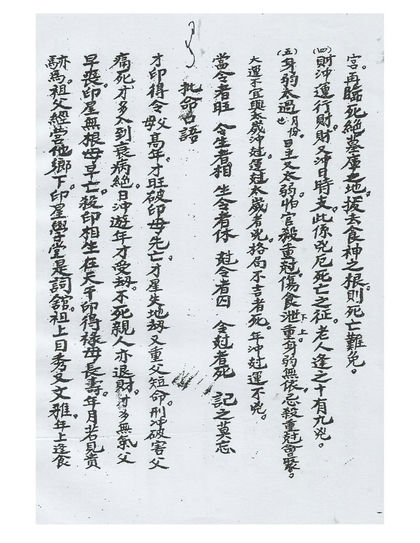 宫。再臨死絕墓庫之地。拔去食神之根。則死亡難免。
(四)財冲運行財。財又冲日時支。此係凶尼死亡之征。老人逢之十有九凶。
(五)身弱太過 月份 日主又太弱。怕官殺重尅。傷食泄重。身弱無依。忌殺重尅
大運不宜與太歲冲。運冲運尅太歲者凶。格局不吉者死。年冲尅運不凶。
當令者旺 令生者相 生令者休 尅令者囚 令尅者死 記之莫忘
批命口語
才印得令父母高年。才旺破印母先亡。才星失地劫又重父短命。刑冲破害父
痛死。才多入到衰病絕。日冲遊年才受劫。不死親人亦退財。才多無氣父
早喪。印星無根母早亡。殺印相生在天干。印得祿母長壽。年月若見貴
驛馬。祖父經营他鄉下。印星學堂是詞舘。祖上日秀又文雅。年上逢食